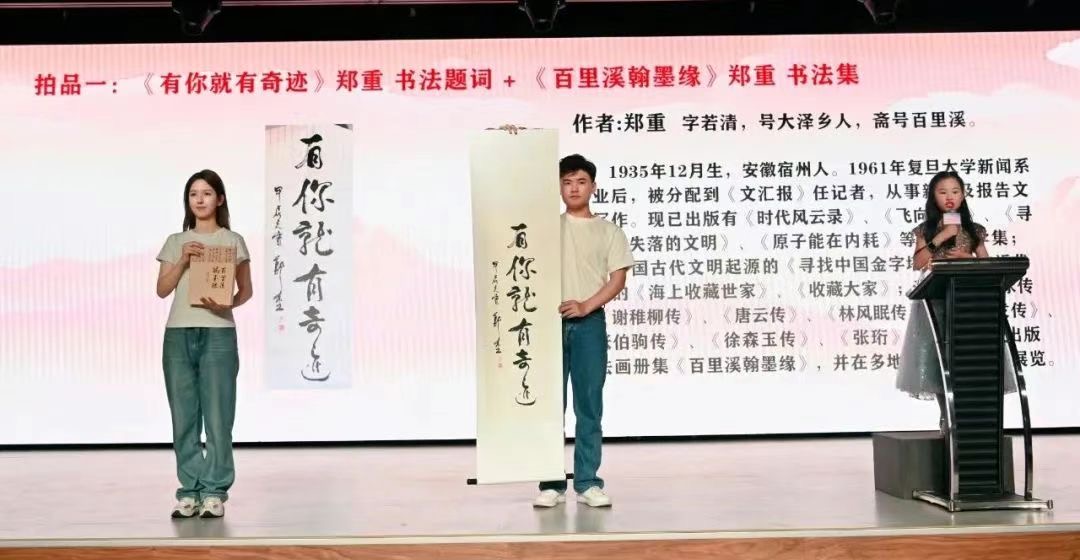 拍品一：《有你就有奇迹》郑重 书法题词 + 《百里溪翰墨缘》郑重 书法集
作者:郑重 字若清，号大泽乡人，斋号百里溪。
1935年12月生，安徽宿州人。1961年复旦大学新闻系
业后，被分配到《文汇报》任记者，从事新 及报告文
作。现已出版有《时代风云录》、《飞向 、《寻
失落的文明》、《原子能在内耗》等 字集；
国古代文明起源的《寻找中国金字
的《海上收藏世家》、《收藏大家》；
谢稚柳传》、《唐云传》、《林风眠传 传》、
伯驹传》、《徐森玉传》、《张珩 出版
法画册集《百里溪翰墨缘》，并在多地 展览。
有你就有奇迹
郑重
有你就有奇迹
郑重
百里溪
翰墨缘